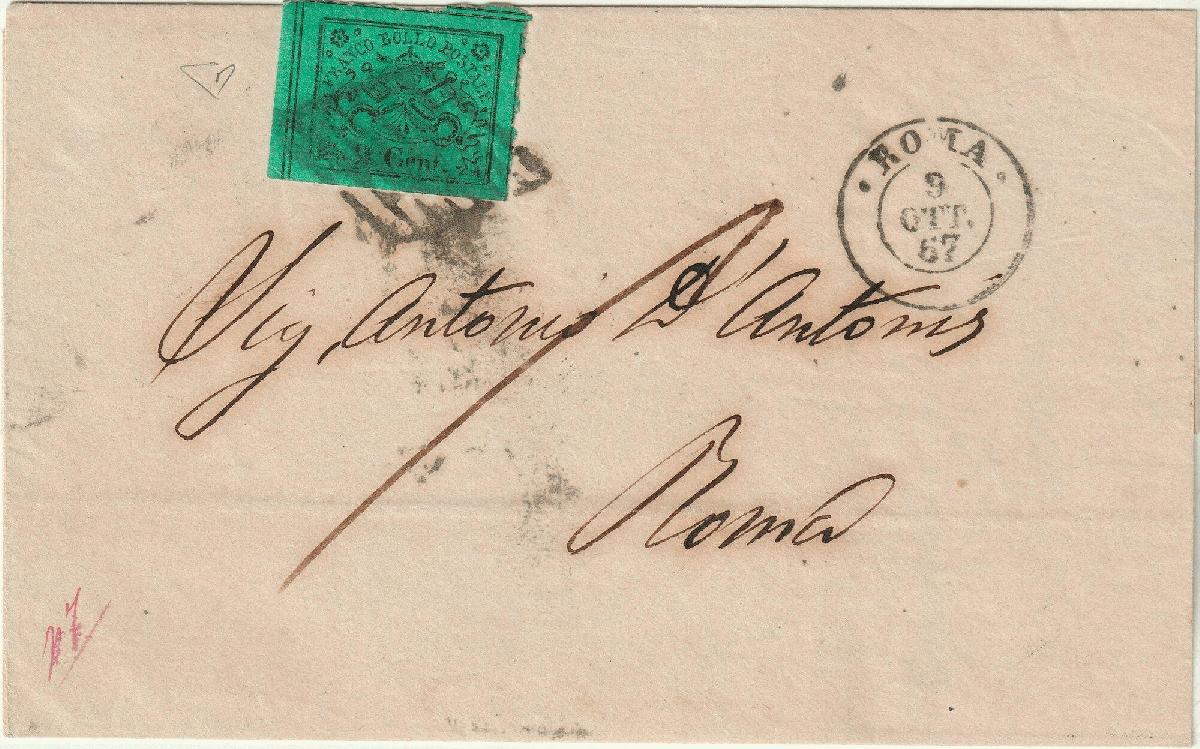 FRANCO BOLLO POSTALE
2 Cent.
ROMA
9
OTT.
67
Sig. Antonio D'Antonis
Roma